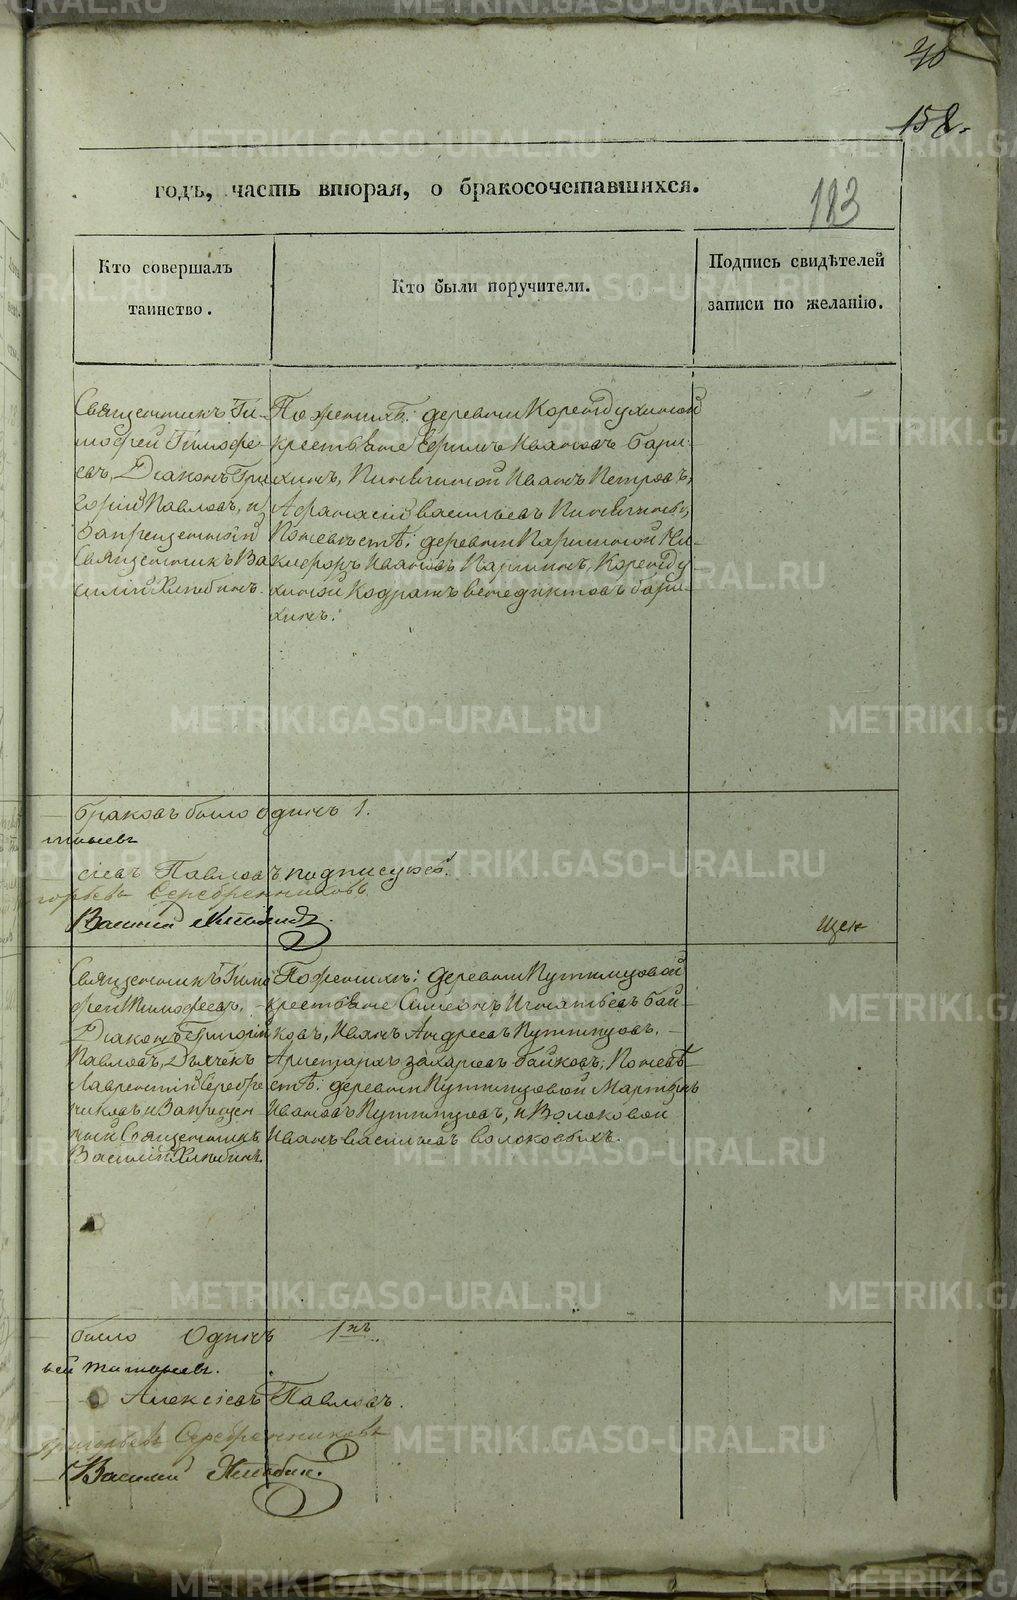 158.
183
годъ, часть вторая, о бракосочетавшихся.
Кто совершалъ
таинство.
Кто были поручители.
Подпись свидѣтелей
записи по желанію.
Священникъ Ти-
мофей Тимофе-
евъ, Діаконъ Гри
горій Павловъ, и
Запрещенный
Священникъ Ва
силій Хлыбинъ.
По женихѣ: деревни
крестьяне Ефимъ Ивановъ Бари-
хинъ, Иванъ Петровъ,
Афанасій Васильевъ
По невѣстѣ: деревни Ни-
кифоръ Ивановъ
Кодратъ Венедиктовъ Бари-
хинъ.
браковъ было одинъ 1.
Павловъ подписуюсь.
Серебренниковъ
Василій
Священникъ Тимо
фей Тимофеевъ,
Діаконъ Григорій
Павловъ, Дьячекъ
Лаврентій Серебре
никовъ и Запрещен-
ный Священникъ
Василій Хлыбинъ.
По женихѣ: деревни Путимцовой
крестьяне Симеонъ Игнатьевъ Бай-
ковъ, Иванъ Андреевъ Путимцовъ,
Аристархъ Захаровъ Байковъ; По невѣ
стѣ: деревни Путимцовой Мартинъ
Ивановъ Путимцовъ, и Волоковой
Иванъ Васильевъ Волоковыхъ.
было Одинъ 1нъ.
Алексіевъ Павловъ.
Григорьевъ Серебренниковъ
Василій Хлыбин.
METRIKI.GASO-URAL.RU